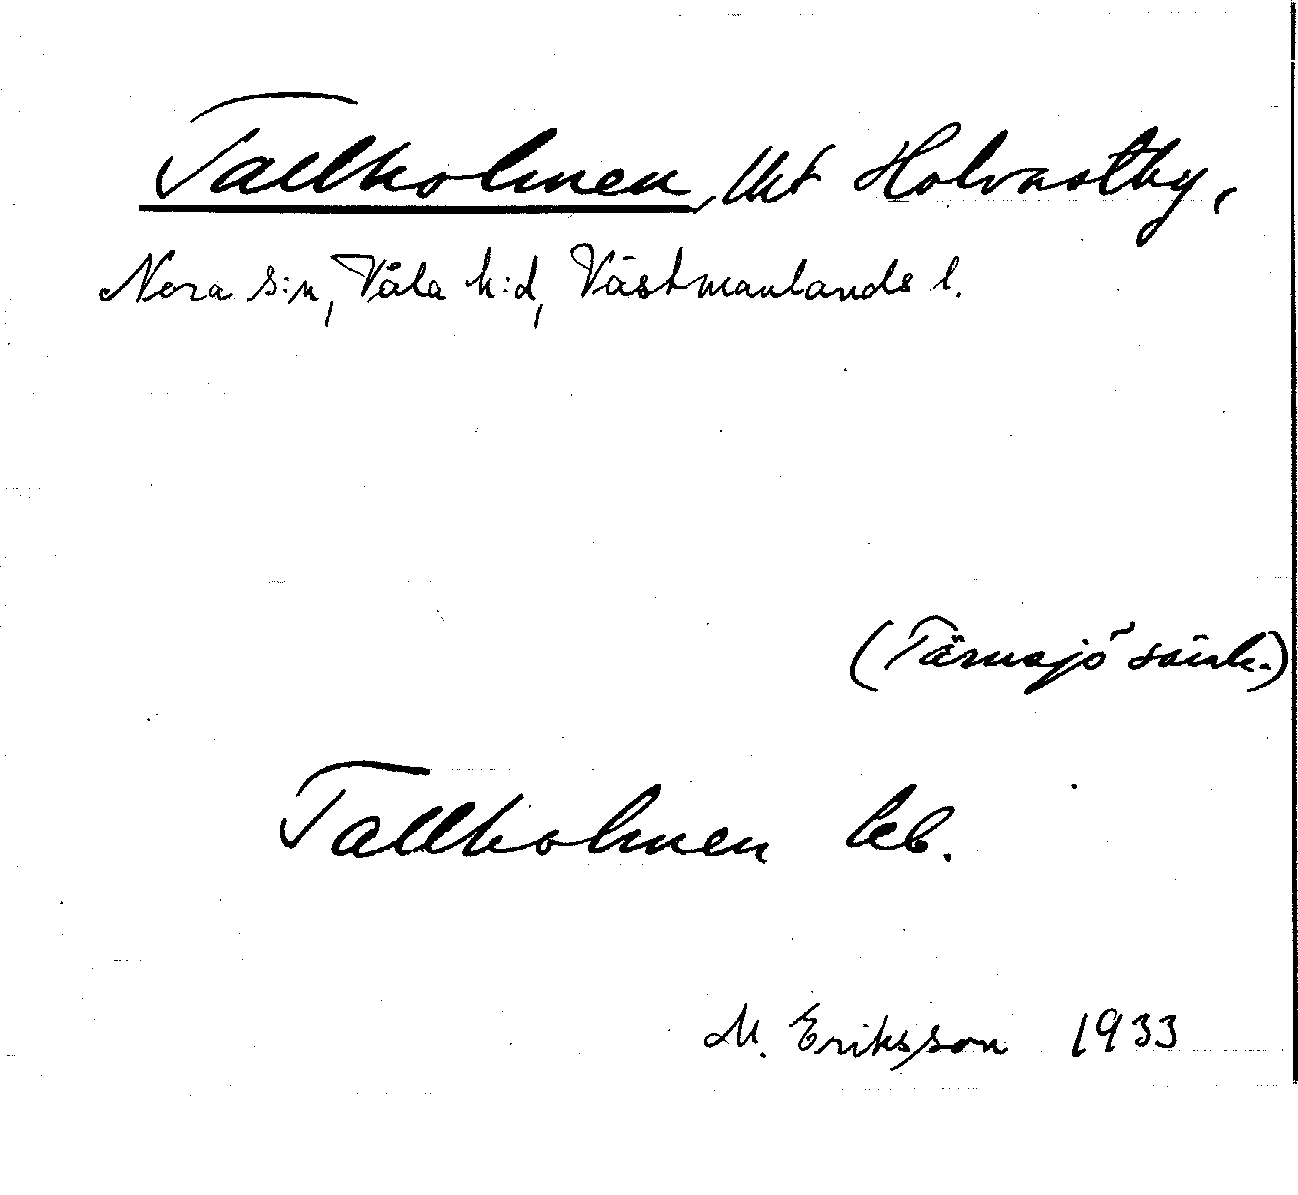 Tallholmen, lht Holvastby,
Nora s:n, Våla h:d, Västmanlands l.
(Tärnsjö sänk.)
Tallholmen leb.
M. Eriksson 1933